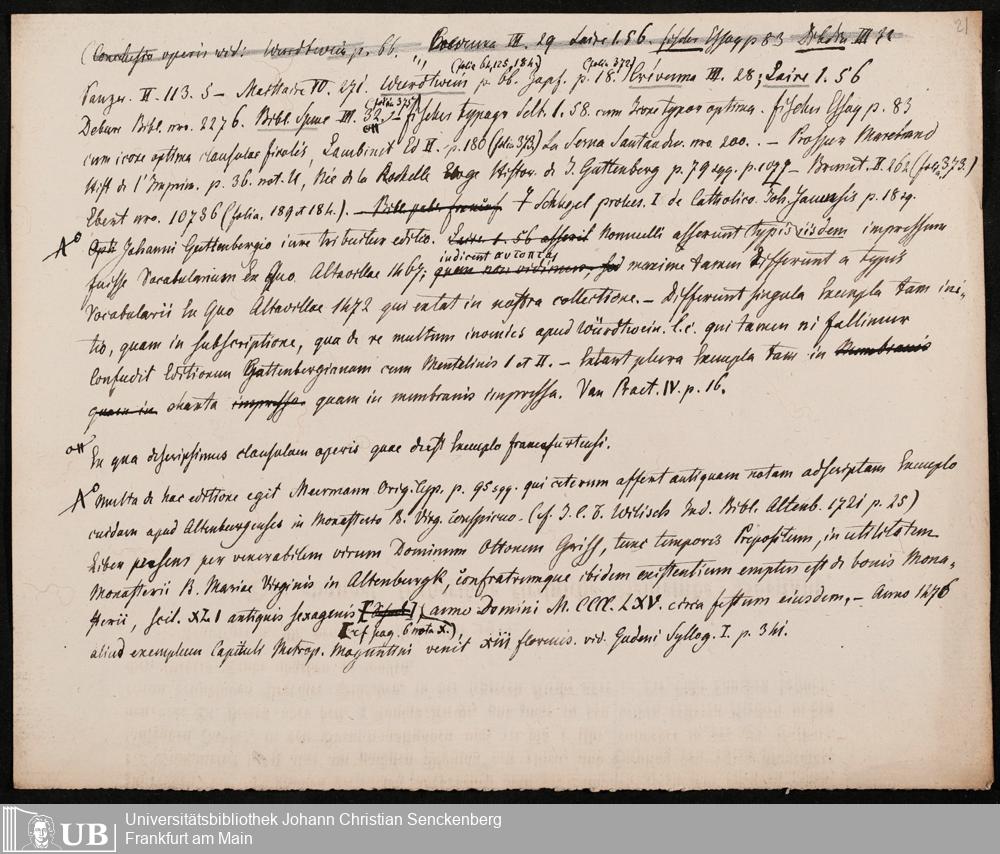 21
operis vid: Wurdtwein p. 66. Crevenna III. 29 Laire 1. 56. fischer Essay p 83 III 32
(folia 62, 125, 184) (folia 372)
Panzer. II. 113. 5 — Maittaire IV. 271. Wurdtwein p. 66. Zapf. p. 18. Crévenna III. 28; Laire 1. 56
(folia 375)
Debure Bibl. nro. 2276. Bibl. Spenc III. 32. fischer typogr Selt. 1. 58. cum Icone typor optima. fischer Essay p. 83
cum icone optima clausulae finalis, Lambinet Ed II. p. 180 (folia 373) La Serna Santander. nro. 200. — Prosper Marchand
Hist de l'Imprim. p. 36. not. U, Née de la Rochelle Eloge Histor. de J. Guttenberg p. 79 sqq. — Brunet. II. 262 (folia 373.)
Ebert nro. 10736 (folia. 189 + 184). — F Schlegel I de Catholico. Joh. Januensis p. 18 sq.
Johanni Guttenbergio iure tribuitur editio. Laire 1. 56 asserit Nonnulli asserunt typis iisdem impressum
indicent αυτοπται
fuisse Vocabularium Ex Quo. Altavillae 1467; quem non vidimus. sed maxime tamen differunt a typis
Vocabularii Ex Quo Altavillae 1472 qui extat in nostra collectione. — Differunt singula Exempla tam ini-
tio, quam in subscriptione, qua de re multum inonuies apud Würdtwein. l.c. qui tamen ni fallimur
Confudit Editionem Guttenbergianam cum Mentelinis I et II. — Extant plura Exempla tam in Membranis
quam in charta impressa. quam in membranis impressa. Van Praet. IV. p. 16.
Ex qua descripsimus clausulam operis quae deest Exemplo francofurtensi.
Multa de hac editione egit Meermann Orig. typ. p. 95 sqq. qui ceterum affert antiquam notam adscriptam Exemplo
cuidam apud Altenburgenses in Monasterio B. Virg. conspicuo. (cf. J. C. Wilisch Ind. Bibl. Altenb. 1721 p. 25)
Liber presens per venerabilem virum Dominum Ottonem Griss, tunc temporis Prepositum, in utilitatem
Monasterii B. Mariae Virginis in Altenburgk, confratrumque ibidem existentium emptus est de bonis Mona-
sterii, scil. XLI antiquis sexagenis anno Domini M. CCCC. LXV. circa festum eiusdem. — Anno 1476
[cf pag. 6 nota X.)
aliud exemplum Capituli Metrop. Moguntini venit xiii florenis. vid. Gudeni Syllog. I. p. 341.
UB
Universitätsbibliothek Johann Christian Senckenberg
Frankfurt am Main